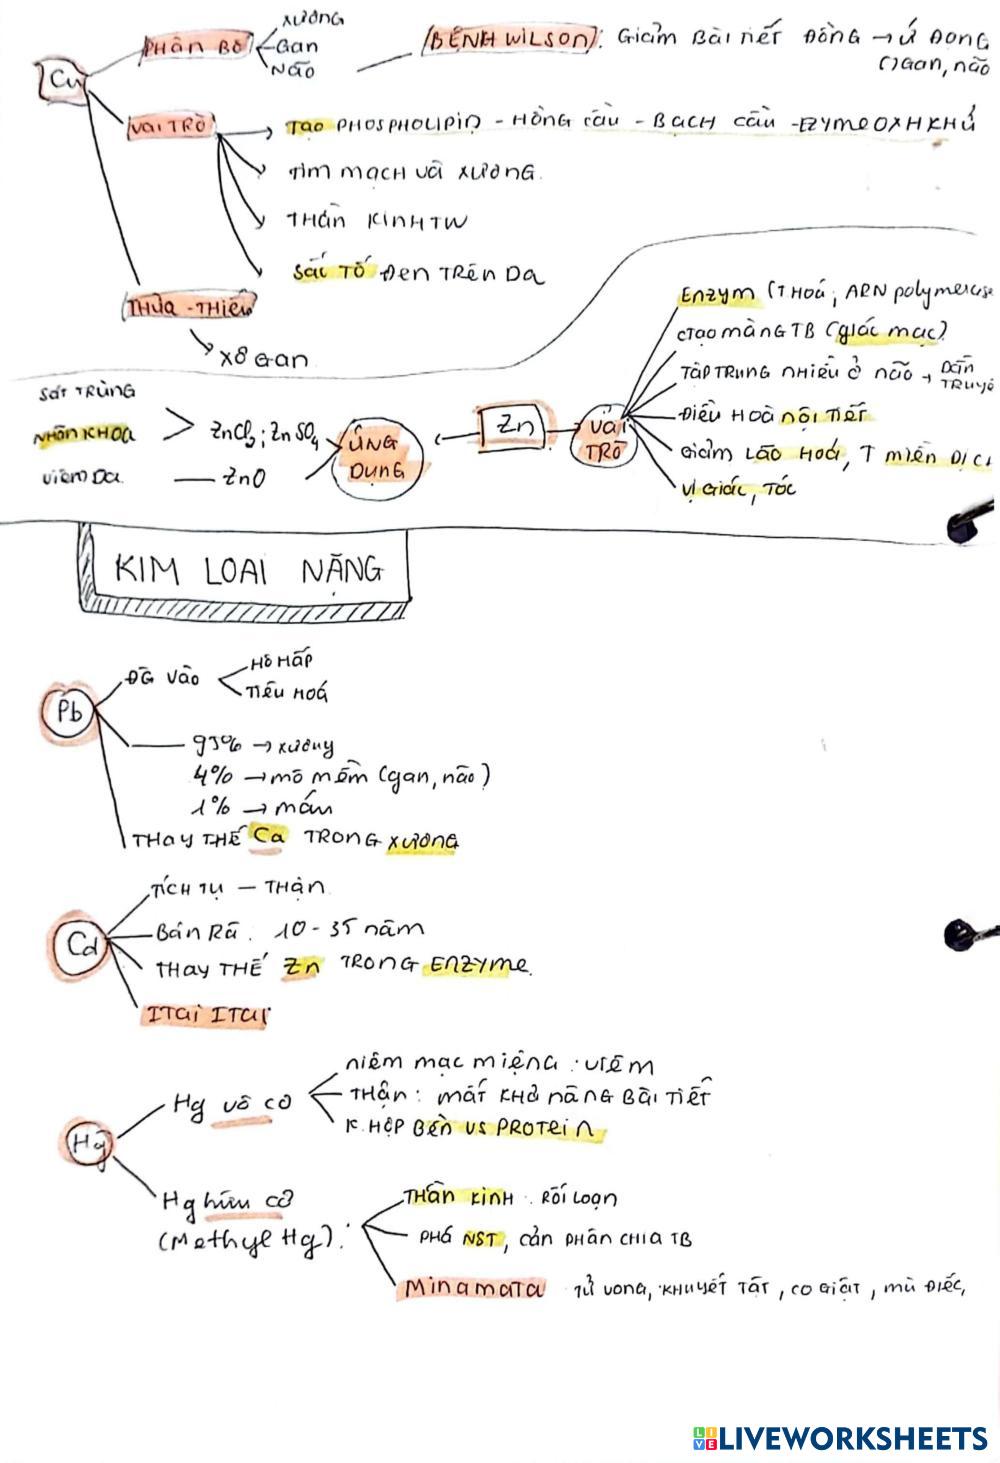 Cu
PHÂN BỐ
XƯƠNG
GAN
NÃO
(BỆNH WILSON): GIẢM BÀI TIẾT ĐỒNG → Ứ ĐỌNG
GAN, NÃO
VAI TRÒ
TẠO PHOSPHOLIPID - HỒNG CẦU - BẠCH CẦU - EZYME OXH KHỬ
TIM MẠCH VÀ XƯƠNG.
THẦN KINH TW
SẮC TỐ ĐEN TRÊN DA
THỪA - THIẾU
XƠ GAN
Zn
VAI TRÒ
ENZYM (T HOÁ; ARN polymerase
CTẠO MÀNG TB (GIÁC MẠC)
TẬP TRUNG NHIỀU Ở NÃO → DẪN TRUYỀ
ĐIỀU HOÀ NỘI TIẾT
GIẢM LÃO HOÁ, T MIỄN DỊC
VỊ GIÁC, TÓC
ỨNG DỤNG
SÁT TRÙNG
NHÃN KHOA
ZnCl2; ZnSO4
VIÊM DA — ZnO
KIM LOẠI NẶNG
Pb
ĐG VÀO
HÔ HẤP
TIÊU HOÁ
95% → XƯƠNG
4% → MÔ MỀM (GAN, NÃO)
1% → MÁU
THAY THẾ Ca TRONG XƯƠNG
Cd
TÍCH TỤ — THẬN
BÁN RÃ: 10 - 35 NĂM
THAY THẾ Zn TRONG ENZYME.
ITAI ITAI
Hg
Hg VÔ CƠ
NIÊM MẠC MIỆNG: VIÊM
THẬN: MẤT KHẢ NĂNG BÀI TIẾT
K.HỢP BỀN VS PROTEIN
Hg HỮU CƠ
(METHYL Hg):
THẦN KINH: RỐI LOẠN
PHÁ NST, CẢN PHÂN CHIA TB
MINAMATA TỬ VONG, KHUYẾT TẬT, CO GIẬT, MÙ ĐIẾC,
LIVEWORKSHEETS